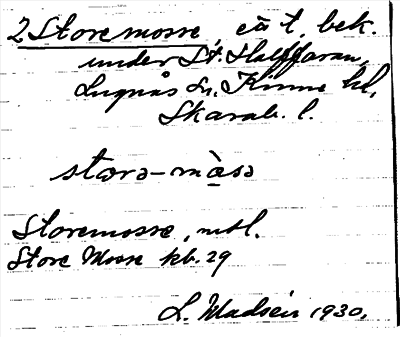 2 Storemosse, eä t. bek.
under St. Stalffaran,
Lugnås sn. Kinne hd,
Skarab. l.
stora-mòsa
Storemosse, mtl.
Store Mosse kb. 29
L. Madsén 1930.